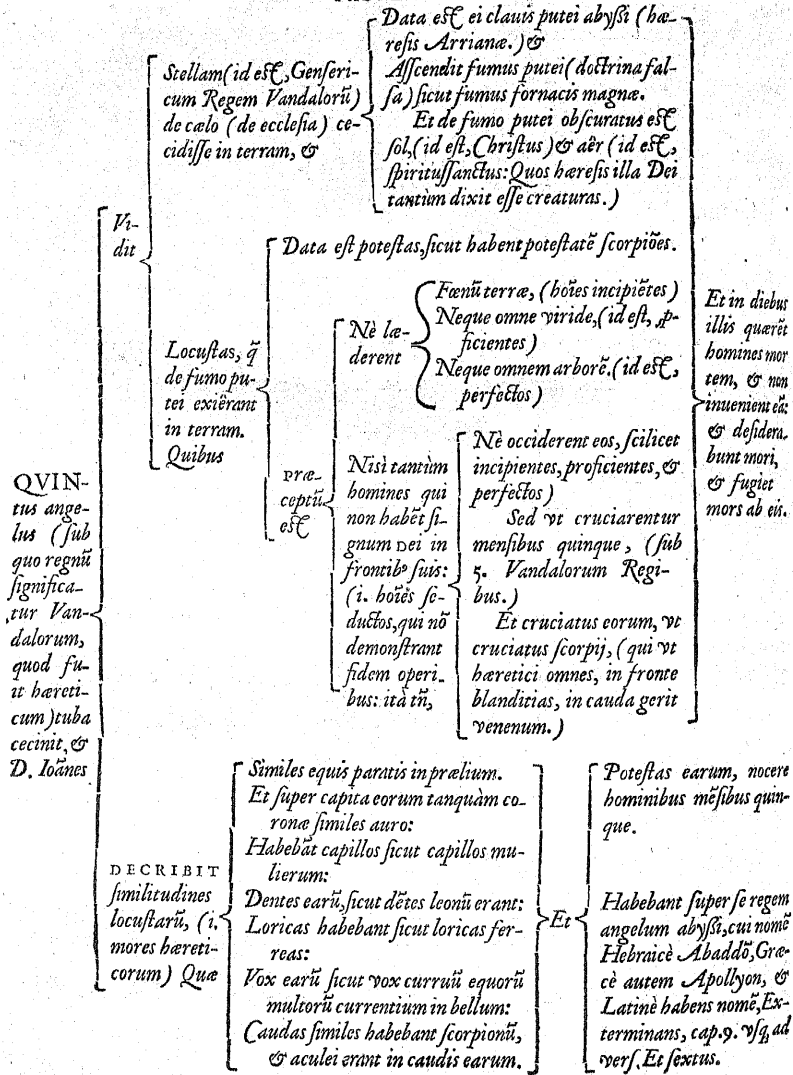 QVIN-
tus ange-
lus (sub
quo regnũ
significa-
tur Van-
dalorum,
quod fu-
it hæreti-
cum) tuba
cecinit, &
D. Ioãnes
Vi-
dit
Stellam (id est, Genseri-
cum Regem Vandalorũ)
de cælo (de ecclesia) ce-
cidisse in terram, &
Data est ei clauis putei abyßi (hæ-
resis Arrianæ.) &
Asscendit fumus putei (doctrina fal-
sa) sicut fumus fornacis magnæ.
Et de fumo putei obscuratus est
sol, (id est, Christus) & aër (id est,
spiritussanctus: Quos hæresis illa Dei
tantùm dixit esse creaturas.)
Locustas, q̃
de fumo pu-
tei exiêrant
in terram.
Quibus
Data est potestas, sicut habent potestatẽ scorpiões.
præ-
ceptũ
est
Nè læ-
derent
Fœnũ terræ, (hoĩes incipiẽtes)
Neque omne viride, (id est, ꝓ-
ficientes)
Neque omnem arborẽ. (id est,
perfectos)
Nisi tantùm
homines qui
non habẽt si-
gnum Dei in
frontibꝰ suis:
(i. hoĩes se-
ductos, qui nõ
demonstrant
fidem operi-
bus: ità tñ,
Nè occiderent eos, scilicet
incipientes, proficientes, &
perfectos)
Sed vt cruciarentur
mensibus quinque, (sub
5. Vandalorum Regi-
bus.)
Et cruciatus eorum, vt
cruciatus scorpij, (qui vt
hæretici omnes, in fronte
blanditias, in cauda gerit
venenum.)
Et in diebus
illis quærẽt
homines mor
tem, & non
inuenient eã:
& desidera-
bunt mori,
& fugiet
mors ab eis.
DECRIBIT
similitudines
locustarũ, (i.
mores hæreti-
corum) Quæ
Similes equis paratis in prælium.
Et super capita eorum tanquàm co-
ronæ similes auro:
Habebãt capillos sicut capillos mu-
lierum:
Dentes earũ, sicut dẽtes leonũ erant:
Loricas habebant sicut loricas fer-
reas:
Vox earũ sicut vox curruũ equorũ
multorũ currentium in bellum:
Caudas similes habebant scorpionũ,
& aculei erant in caudis earum.
Et
Potestas earum, nocere
hominibus mẽsibus quin-
que.
Habebant super se regem
angelum abyßi, cui nomẽ
Hebraicè Abaddõ, Græ-
cè autem Apollyon, &
Latinè habens nomẽ, Ex-
terminans, cap. 9. vsq; ad
vers. Et sextus.